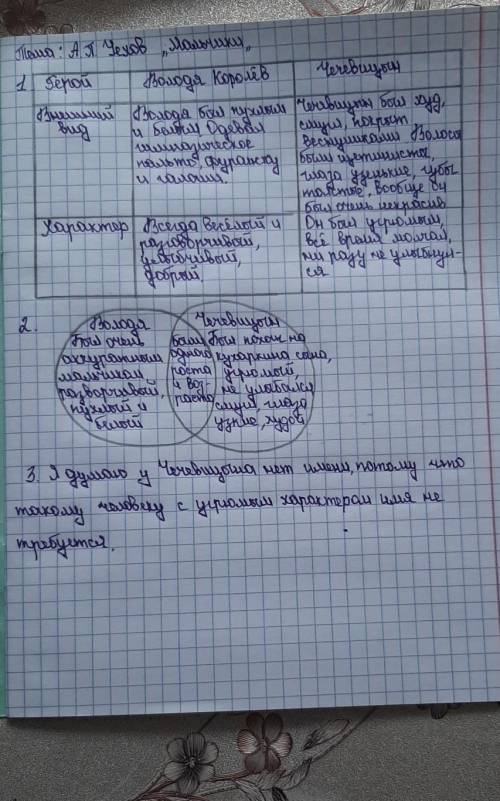 Тема: А П Чехов „Мальчики„
1 Герой Володя Королёв Чечевицын
Внешний вид
Володя был пухлым
и белым Одевал
гимназическое
пальто, фуражку
и галоши.
Чечевицын был худ,
смугл, покрыт
веснушками Волосы
были щетинисты,
глаза узенькие, губы
толстые, вообще он
был очень некрасив
Характер
Всегда весёлый и
разговорчивый,
улыбчивый,
добрый.
Он был угрюмым,
всё время молчал,
ни разу не улыбнул-
ся
2.
Володя
был очень
аккуратным
мальчиком
разворчивый,
пухлый и
белый
были
одного
роста
и воз-
раста
Чечевицын
был похож на
кухаркина сына,
угрюмый,
не улыбался
смугл, глаза
узкие, худой
3. Я думаю у Чечевицына нет имени, потому что
такому человеку с угрюмым характером имя не
требуется.